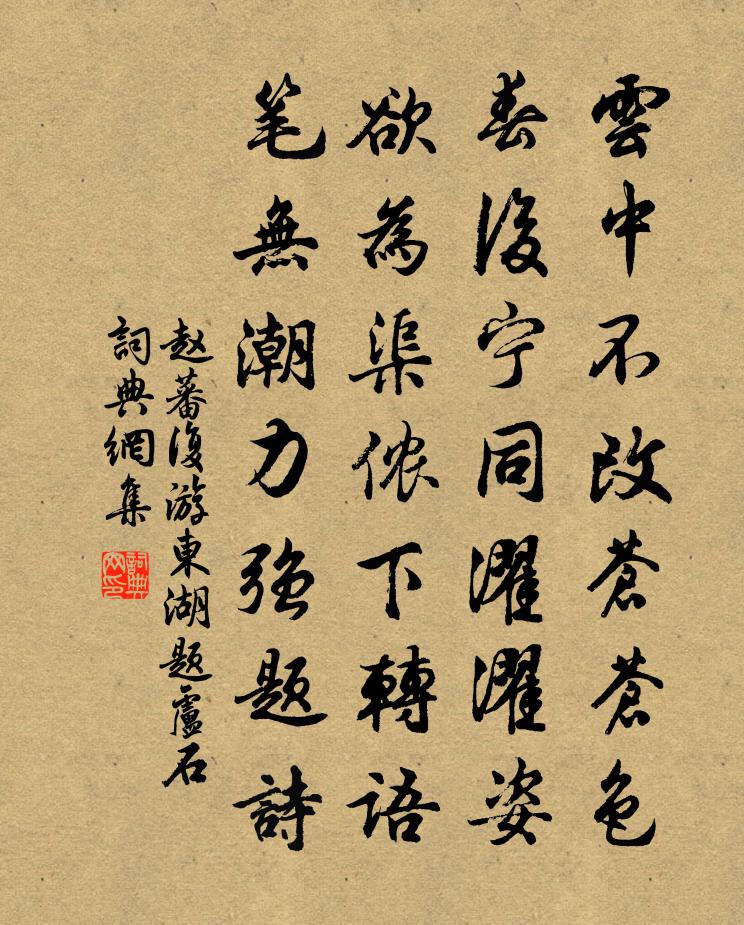 雲中不改蒼蒼色
春後宁同濯濯姿
欲為渠侬下轉語
笔無潮力強题詩
赵蕃復游東湖题盧石
詞典網集
詞典网印